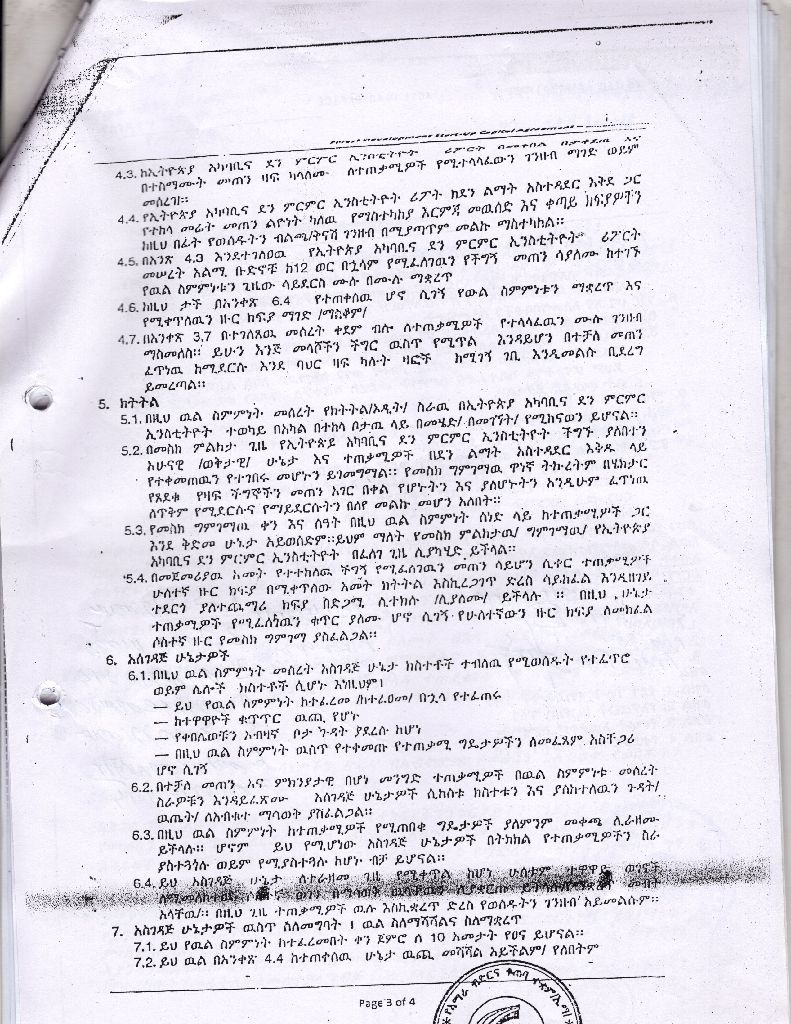 Forest Development Start-Up Capital Agreement
4.3. ከኢትዮጵያ አካባቢና ደን ምርምር ኢንስቲትዮት ሪፖርት
በተስማሙት መጠን ዛፍ ካላለሙ ለተጠቃሚዎች የሚተላላፈውን ገንዘብ ማገድ ወይም
መሰረዝ።
4.4. የኢትዮጵያ አካባቢና ደን ምርምር ኢንስቲትዮት ሪፖት ከደን ልማት አስተዳደር እቅደ ጋር
የተከላ መሬት መጠን ልዮነት ካለዉ የማስተካከያ እርምጃ መዉሰድ እና ቀጣይ ክፍያዎችን
ከዚህ በፊት የወሰዱትን ብልጫ/ቅናሽ ገንዘብ በሚያጣጥም መልኩ ማስተካከል።
4.5. በአንጽ 4.3 እንደተገለፀዉ የኢትዮጵያ አካባቢና ደን ምርምር ኢንስቲትዮት ሪፖርት
መሠረት አልሚ ቡድኖቹ ከ12 ወር በኋላም የሚፈለገዉን የችግኝ መጠን ሳያለሙ ከተገኙ
የዉል ስምምነቱን ጊዜው ሳይደርስ ሙሉ በሙሉ ማቋረጥ
4.6. ከዚህ ታች በአንቀጽ 6.4 የተጠቀሰዉ ሆኖ ሲገኝ የውል ስምምነቱን ማቋረጥ እና
የሚቀጥለዉን ዙር ክፍያ ማገድ /ማስቆም/
4.7. በአንቀጽ 3.7 በተገለጸዉ መሰረት ቀደም ብሎ ለተጠቃሚዎች የተላላፈዉን ሙሉ ገንዘብ
ማስመለስ። ይሁን እንጅ መላሾችን ችግር ዉስጥ የሚጥል እንዳይሆን በተቻለ መጠን
ፈጥነዉ ከሚደርሱ እንደ ባህር ዛፍ ካሉት ዛፎች ከሚገኝ ገቢ እንዲመልሱ ቢደረግ
ይመረጣል።
5. ክትትል
5.1. በዚህ ዉል ስምምነት መሰረት የክትትል/ኦዲት/ ስራዉ በኢትዮጵያ አካባቢና ደን ምርምር
ኢንስቲትዮት ተወካይ በአካል በተከላ ቦታዉ ላይ በመሄድ/ በመገኘት/ የሚከናወን ይሆናል።
5.2. በመስክ ምልከታ ጊዜ የኢትዮጵይ አካባቢና ደን ምርምር ኢንስቲትዮት ችግኙ ያለበትን
አሁናዊ /ወቅታዊ/ ሁኔታ እና ተጠቃሚዎች በደን ልማት አስተዳደር እቅዱ ላይ
የተቀመጠዉን የተገበሩ መሆኑን ይገመግማል። የመስክ ግምገማዉ ዋነኛ ትኩረትም በሄክታር
የጸደቁ የዛፍ ችግኞችን መጠን አገር በቀል የሆኑትን እና ያልሆኑትን እንዲሁም ፈጥነዉ
ለጥቅም የሚደርሱና የማይደርሱትን በለየ መልኩ መሆን አለበት።
5.3. የመስክ ግምገማዉ ቀን እና ሰዓት በዚህ ዉል ስምምነት ሰነድ ላይ ከተጠቃሚዎች ጋር
እንደ ቅድመ ሁኔታ አይወሰድም።ይህም ማለት የመስክ ምልከታዉ/ ግምገማዉ/ የኢትዮጵያ
አካባቢና ደን ምርምር ኢንስቲትዮት በፈለገ ጊዜ ሊያካሂድ ይችላል።
5.4. በመጀመሪያዉ አመት የተተከለዉ ችግኝ የሚፈለገዉን መጠን ሳይሆን ሲቀር ተጠቃሚዎች
ሁለተኛ ዙር ክፍያ በሚቀጥለው አመት ክትትል እስኪረጋገጥ ድረስ ሳይከፈል እንዲዘገይ
ተደርጎ ያለተጨማሪ ክፍያ በድጋሚ ሊተክሉ /ሊያለሙ/ ይችላሉ ። በዚህ ሁኔታ
ተጠቃሚዎች የሚፈለገዉን ቁጥር ያለሙ ሆኖ ሲገኝ የሁለተኛውን ዙር ክፍያ ለመክፈል
ሶስተኛ ዙር የመስክ ግምገማ ያስፈልጋል።
6. አስገዳጅ ሁኔታዎች
6.1. በዚህ ዉል ስምምነት መሰረት አስገዳጅ ሁኔታ ክስተቶች ተብለዉ የሚወሰዱት የተፈጥሮ
ወይም ሌሎች ክስተቶች ሲሆኑ እነዚህም፤
— ይህ የዉል ስምምነት ከተፈረመ /ከተፈፀመ/ በኋላ የተፈጠሩ
— ከተዋዋዮች ቁጥጥር ዉጪ የሆኑ
— የቀበሌወቹን አብዛኛ ቦታ ጉዳት ያደረሱ ከሆነ
— በዚህ ዉል ስምምነት ዉስጥ የተቀመጡ የተጠቃሚ ግዴታዎችን ለመፈጸም አስቸጋሪ
ሆኖ ሲገኝ
6.2. በተቻለ መጠን እና ምክንያታዊ በሆነ መንግድ ተጠቃሚዎች በዉል ስምምነቱ መሰረት
ስራዎቹን እንዳይፈጽሙ አስገዳጅ ሁኔታዎች ሲከሰቱ ክስተቱን እና ያስከተለዉን ጉዳት/
ዉጤት/ ለአብቁተ ማሳወቅ ያሽፈልጋል።
6.3. በዚህ ዉል ስምምነት ከተጠቃሚዎች የሚጠበቁ ግዴታዎች ያለምንም መቀጫ ሊራዘሙ
ይችላሉ። ሆኖም ይህ የሚሆነው አስገዳጅ ሁኔታዎች በትክክል የተጠቃሚዎችን ስራ
ያስተጓጎሉ ወይም የሚያስተጓጉሉ ከሆኑ ብቻ ይሆናል።
6.4. ይህ አስገዳጅ ሁኔታ ለተራዘመ ጊዜ የሚቀጥል ከሆነ ሁለቱም ተዋዋይ ወገኖች
መብት
አላቸዉ። በዚህ ጊዜ ተጠቃሚዎች ዉሉ እስኪቋረጥ ድረስ የወሰዱትን ገንዘብ አይመልሱም።
7. አስገዳጅ ሁኔታዎች ዉስጥ ስለመግባት ፤ ዉል ስለማሻሻልና ስለማቋረጥ
7.1. ይህ የዉል ስምምነት ከተፈረመበት ቀን ጀምሮ ለ 10 አመታት የፀና ይሆናል።
7.2. ይህ ዉል በአንቀጽ 4.4 ከተጠቀሰዉ ሁኔታ ዉጪ መሻሻል አይችልም/ የለበትም
Page 3 of 4